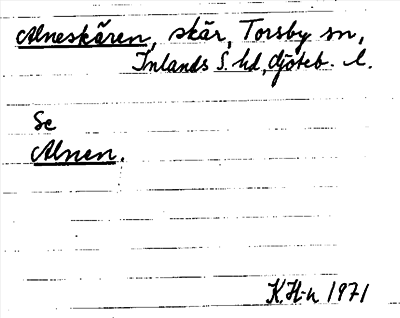 Alneskären, skär, Torsby sn,
Inlands S. hd, Göteb. l.
Se
Alnen.
K.H-n 1971